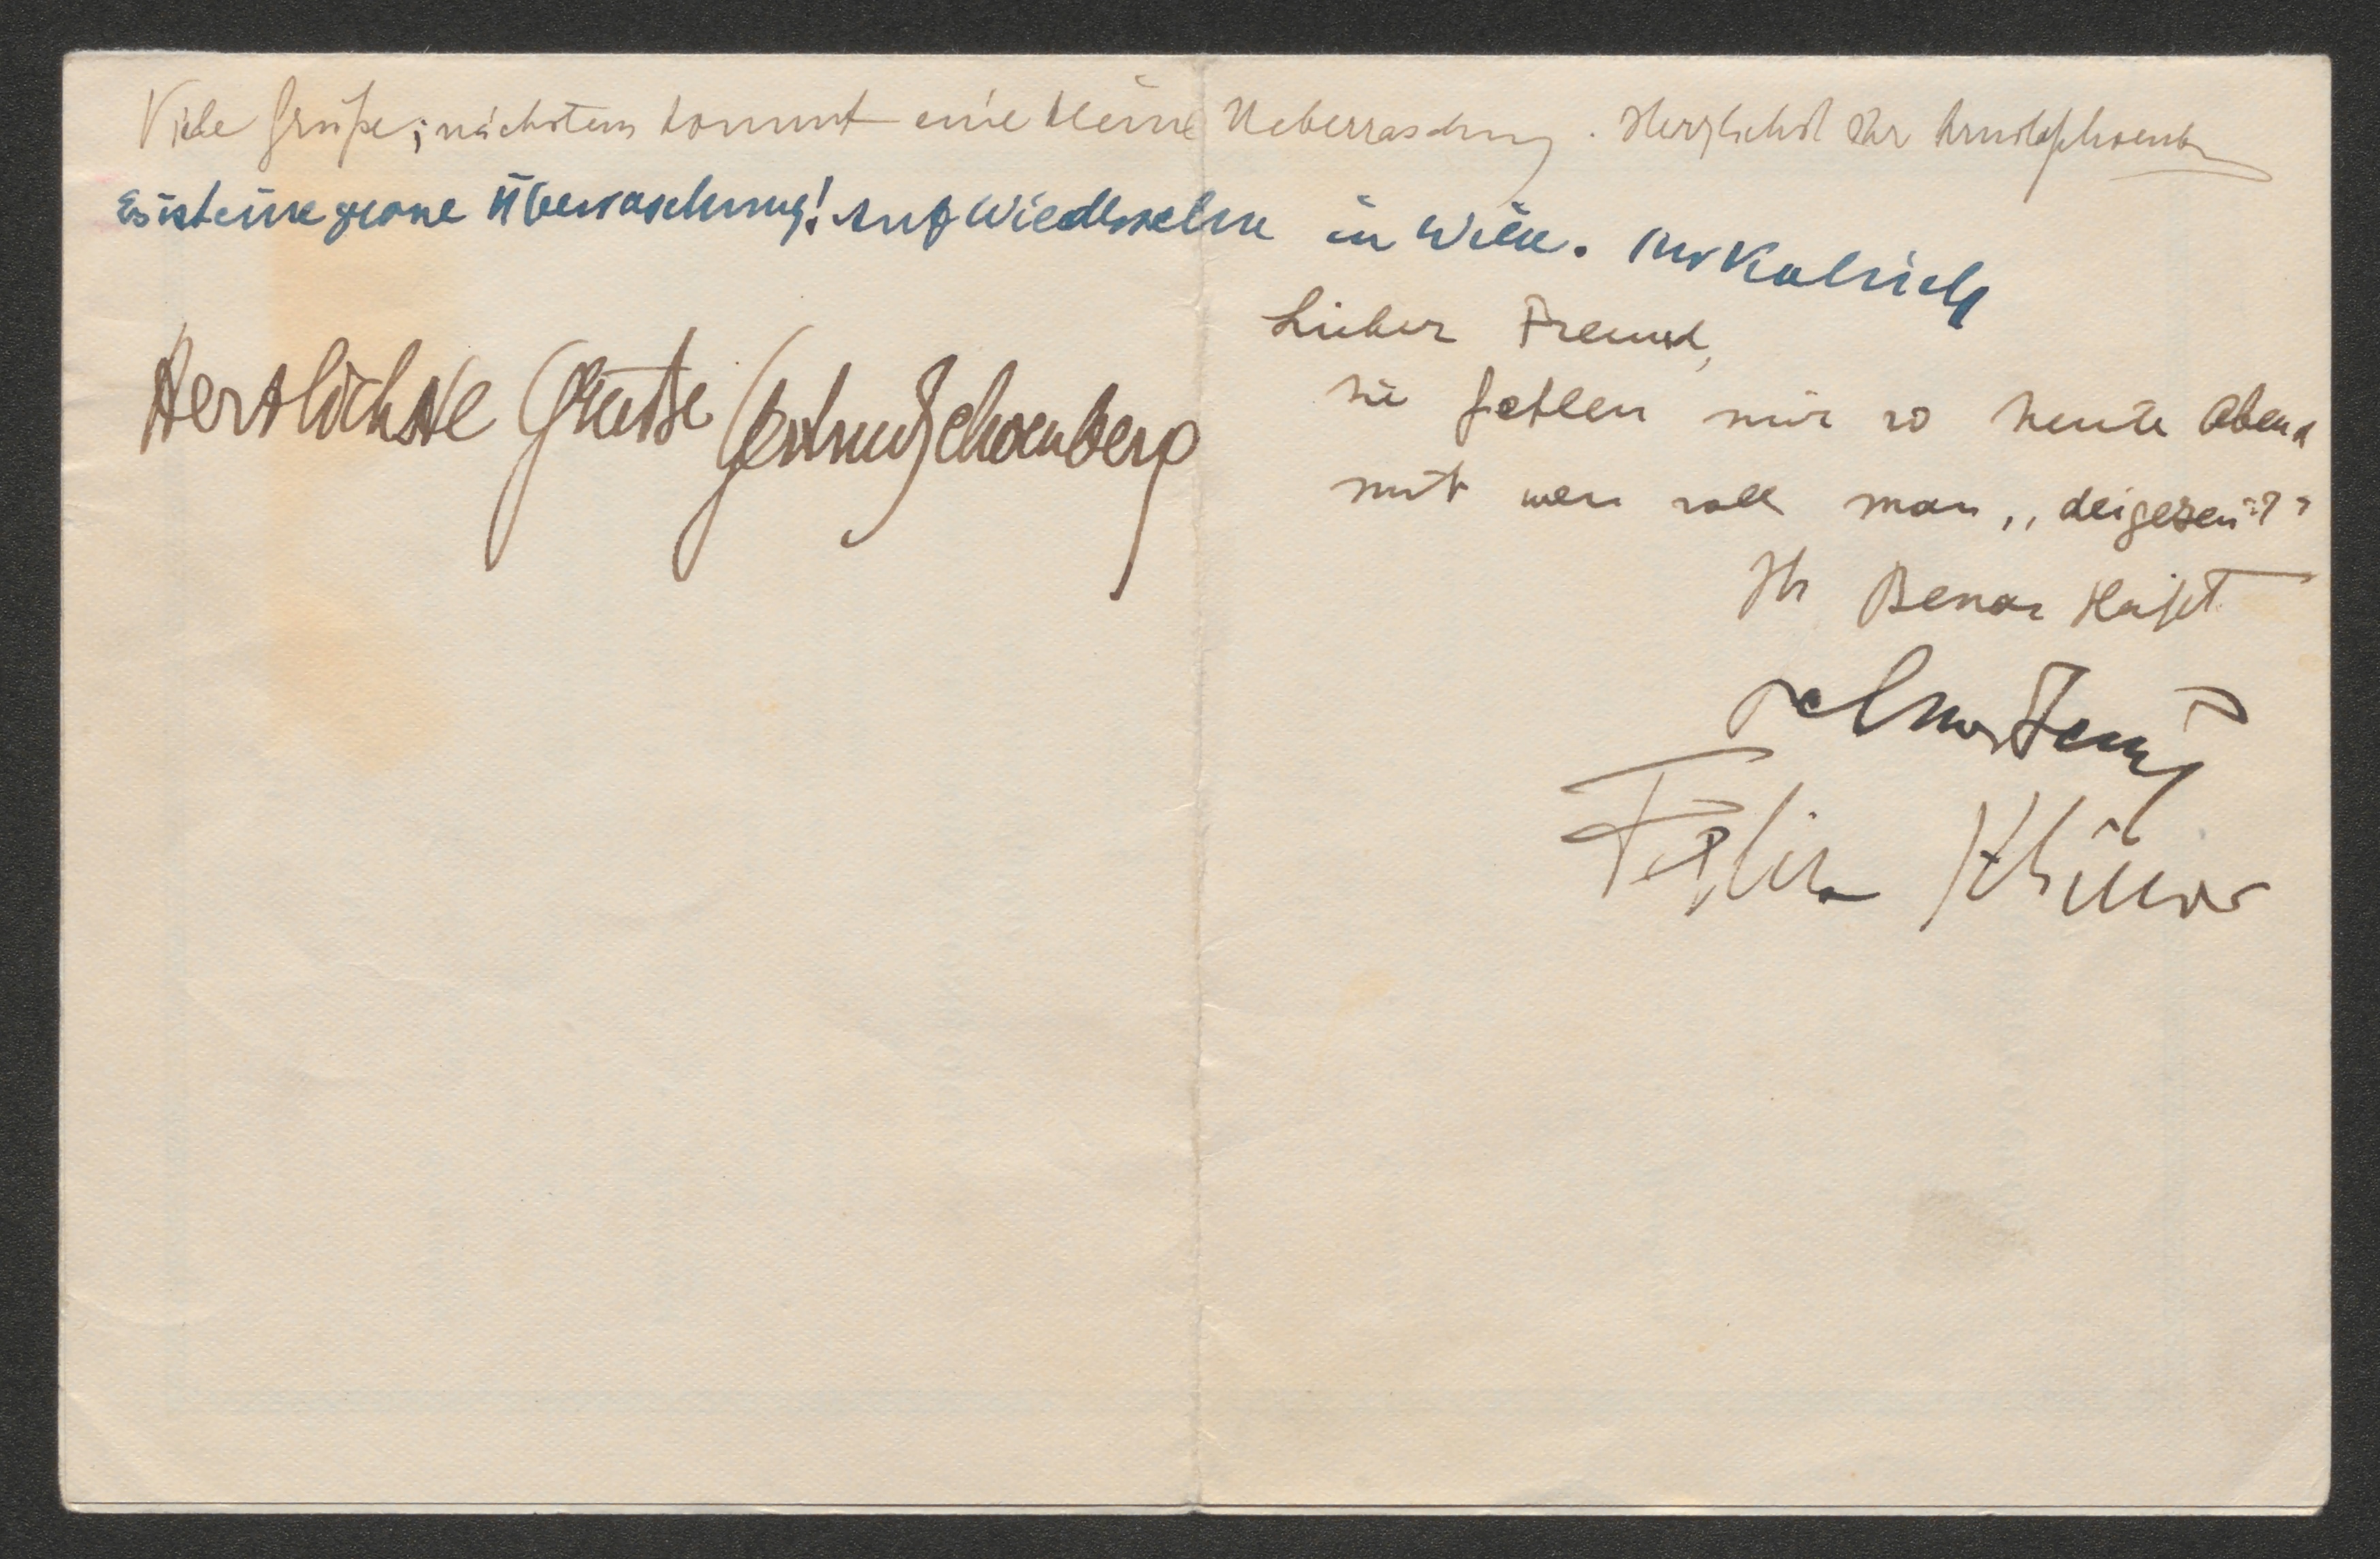 Viele Grüße; nächstens kommt eine kleine Ueberraschung. Herzlichst Ihr Arnold Schoenberg
Es ist eine grosse Überraschung! Auf Wiedersehn in Wien. Ihr Kolisch
Herzlichste Grüsse Gertrud Schoenberg
Lieber Freund,
Sie fehlen mir so heute Abend
mit wem soll man „deigezen"??
Ihr Benar Heifetz
Felix Khuner